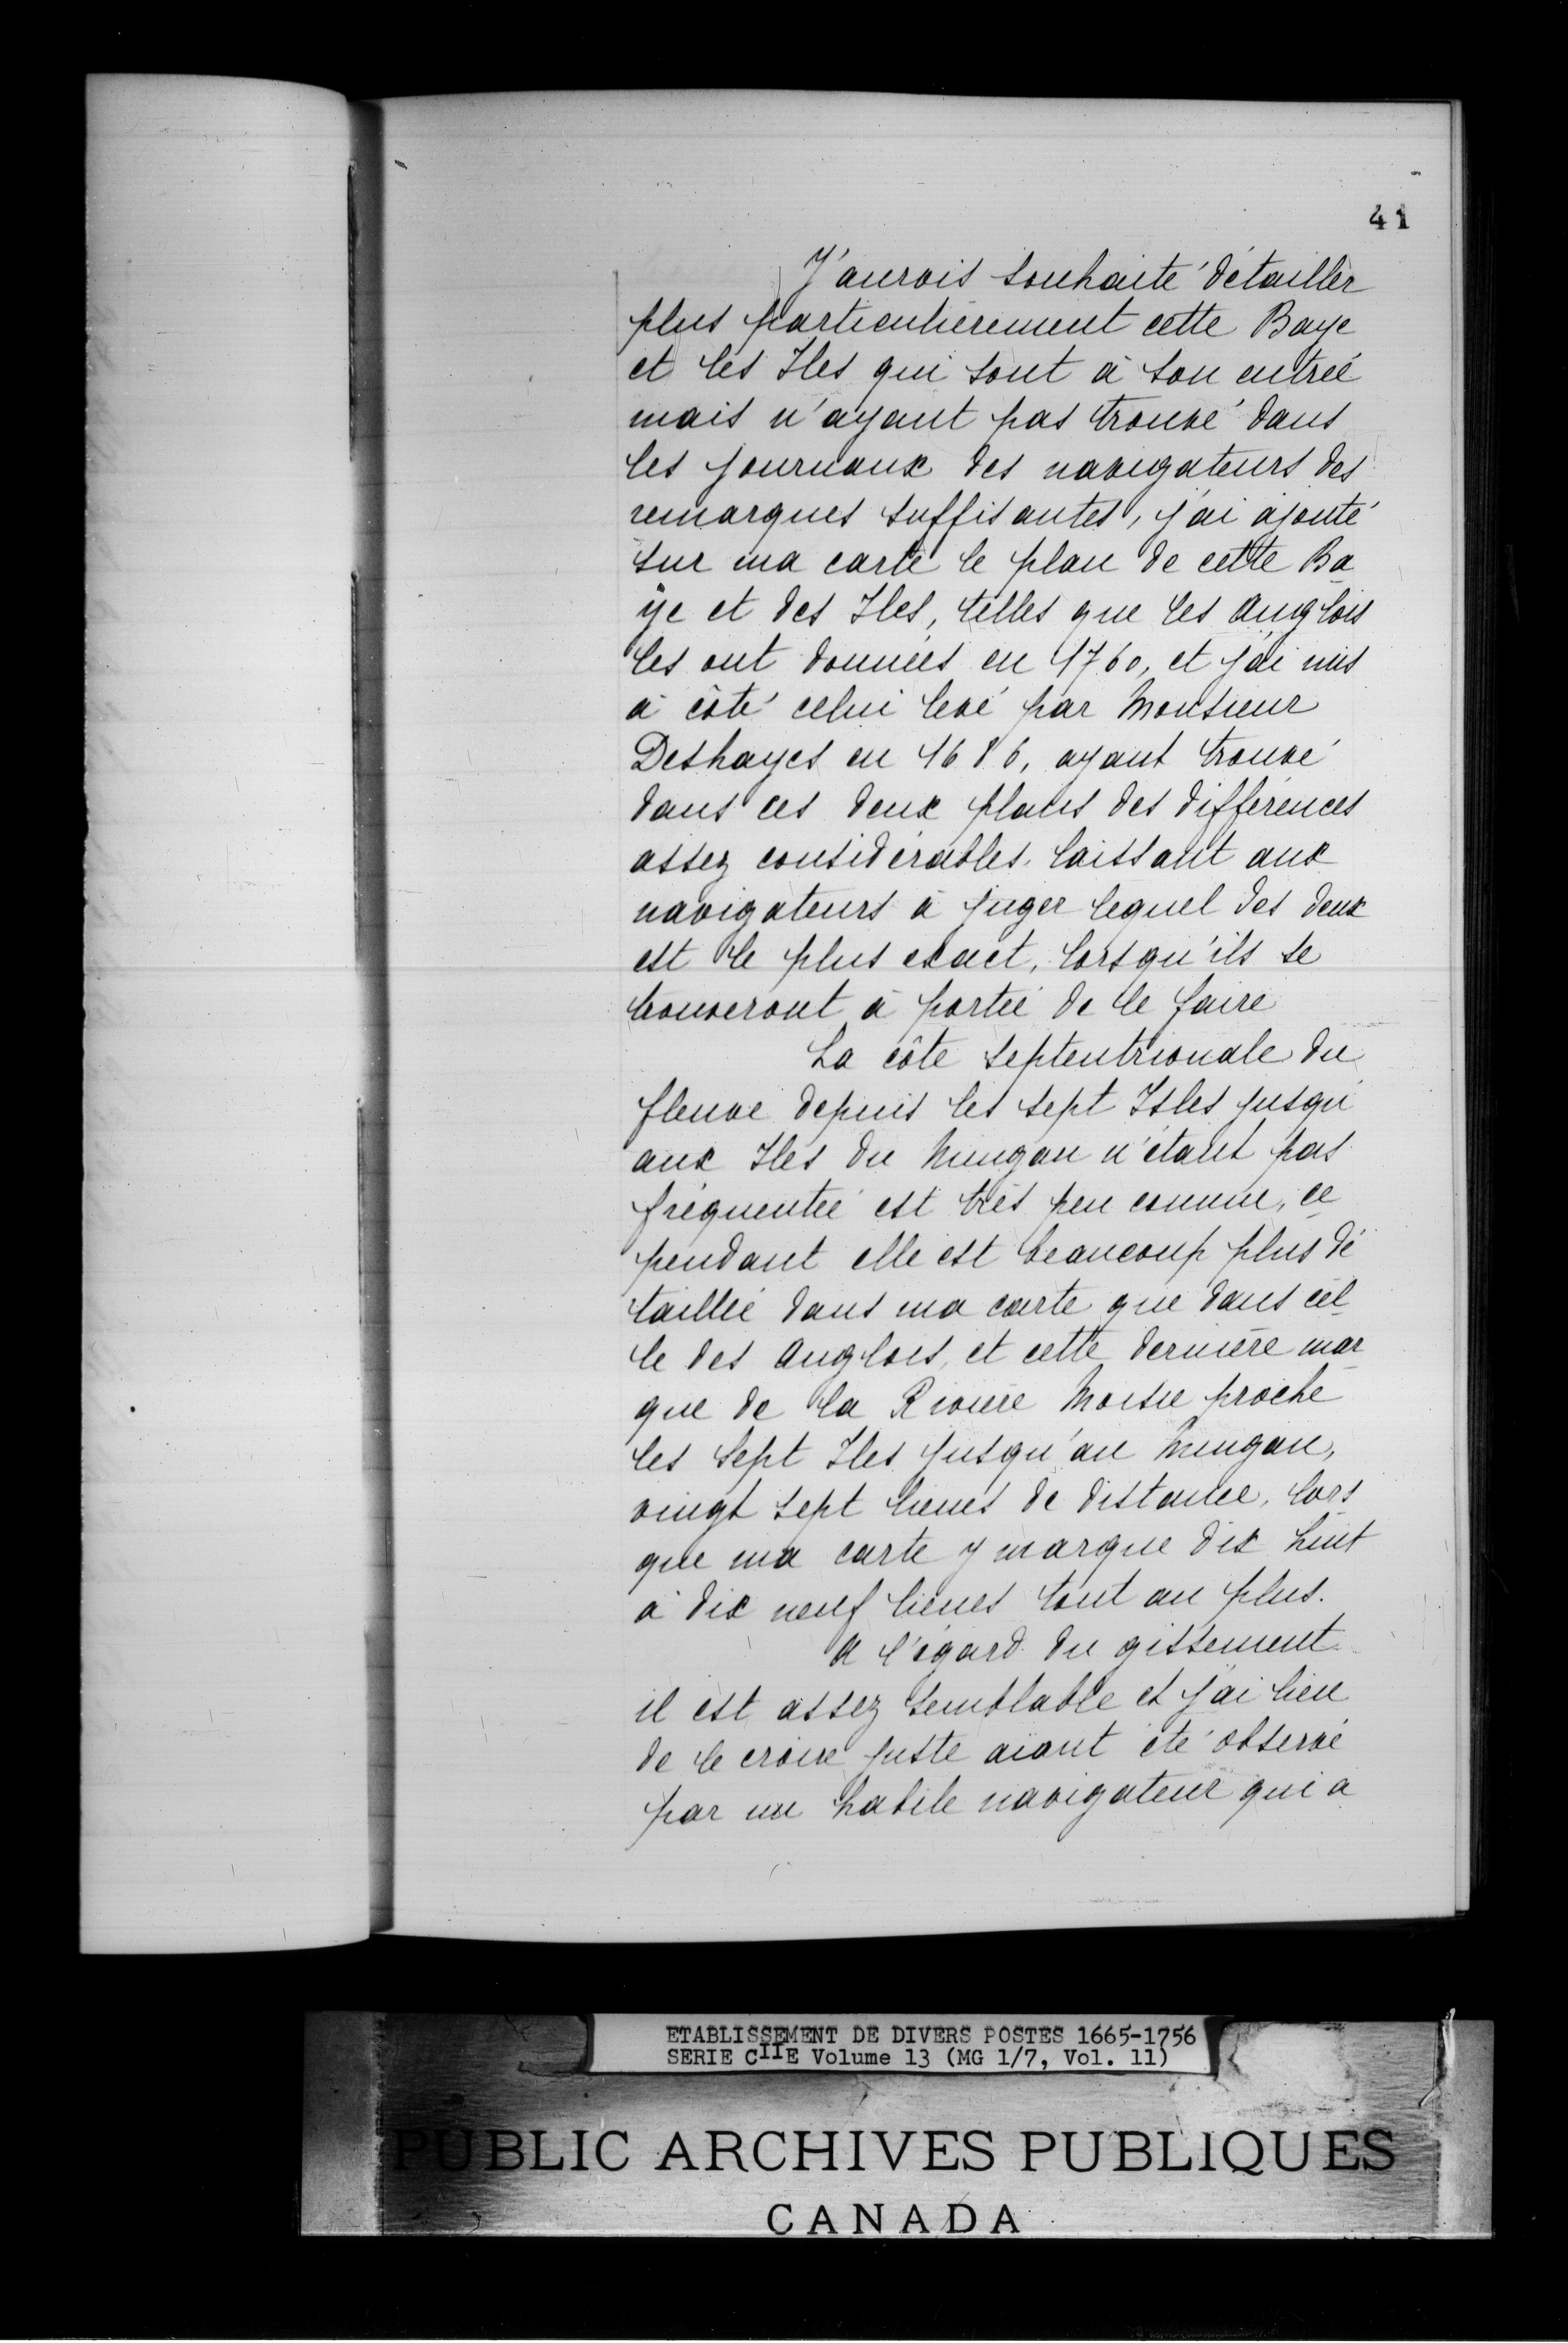 41
J'aurois souhaité détailler
plus particulièrement cette Baye
et les Iles qui sont à son entrée
mais n'ayant pas trouvé dans
les journaux des navigateurs des
remarques suffisantes, j'ai ajouté
sur ma carte le plan de cette Ba
ÿe et des Iles, telles que les Anglois
les ont données en 1760, et j'ai mis
à côté celui levé par Monsieur
Deshayes en 1686, ayant trouvé
dans ces deux plans des différences
assez considérables, laissant aux
navigateurs à juger lequel des deux
est le plus exact, lorsqu'ils se
trouveront à portée de le faire
La côte septentrionale du
fleuve depuis les sept Isles jusqu'
aux Iles du Mingan n'étant pas
fréquentée est très peu connue, ce
pendant elle est beaucoup plus dé
taillée dans ma carte que dans cel
le des Anglois, et cette dernière mar
que de la Rivière Moisie proche
les Sept Iles jusqu'au Mingan,
vingt sept lieues de distance, lors
que ma carte y marque dix huit
à dix neuf lieues tout au plus.
A l'égard du gissement
il est assez semblable et j'ai lieu
de le croire juste aiant été observé
par un habile navigateur qui a
ETABLISSEMENT DE DIVERS POSTES 1665-1756
SERIE CIIE Volume 13 (MG 1/7, Vol. 11)
PUBLIC ARCHIVES PUBLIQUES
CANADA